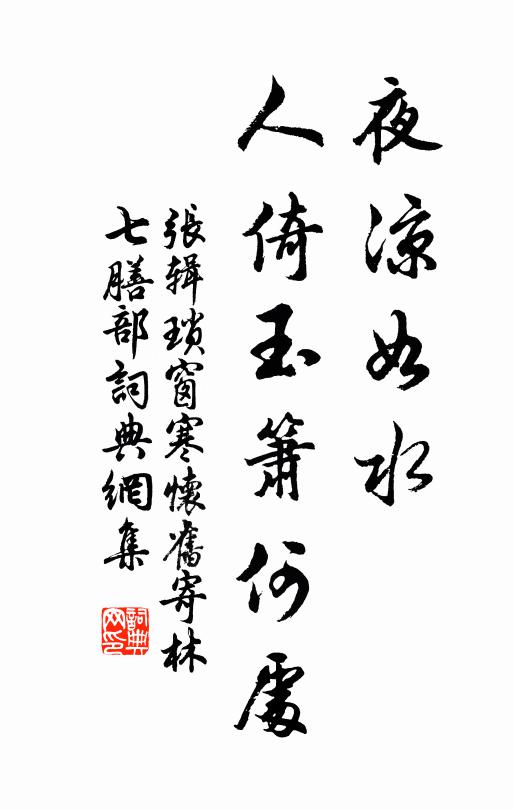 夜涼如水
人倚玉簫何處
張輯瑣窗寒懷舊寄林
七膳部詞典網集
詞典网印